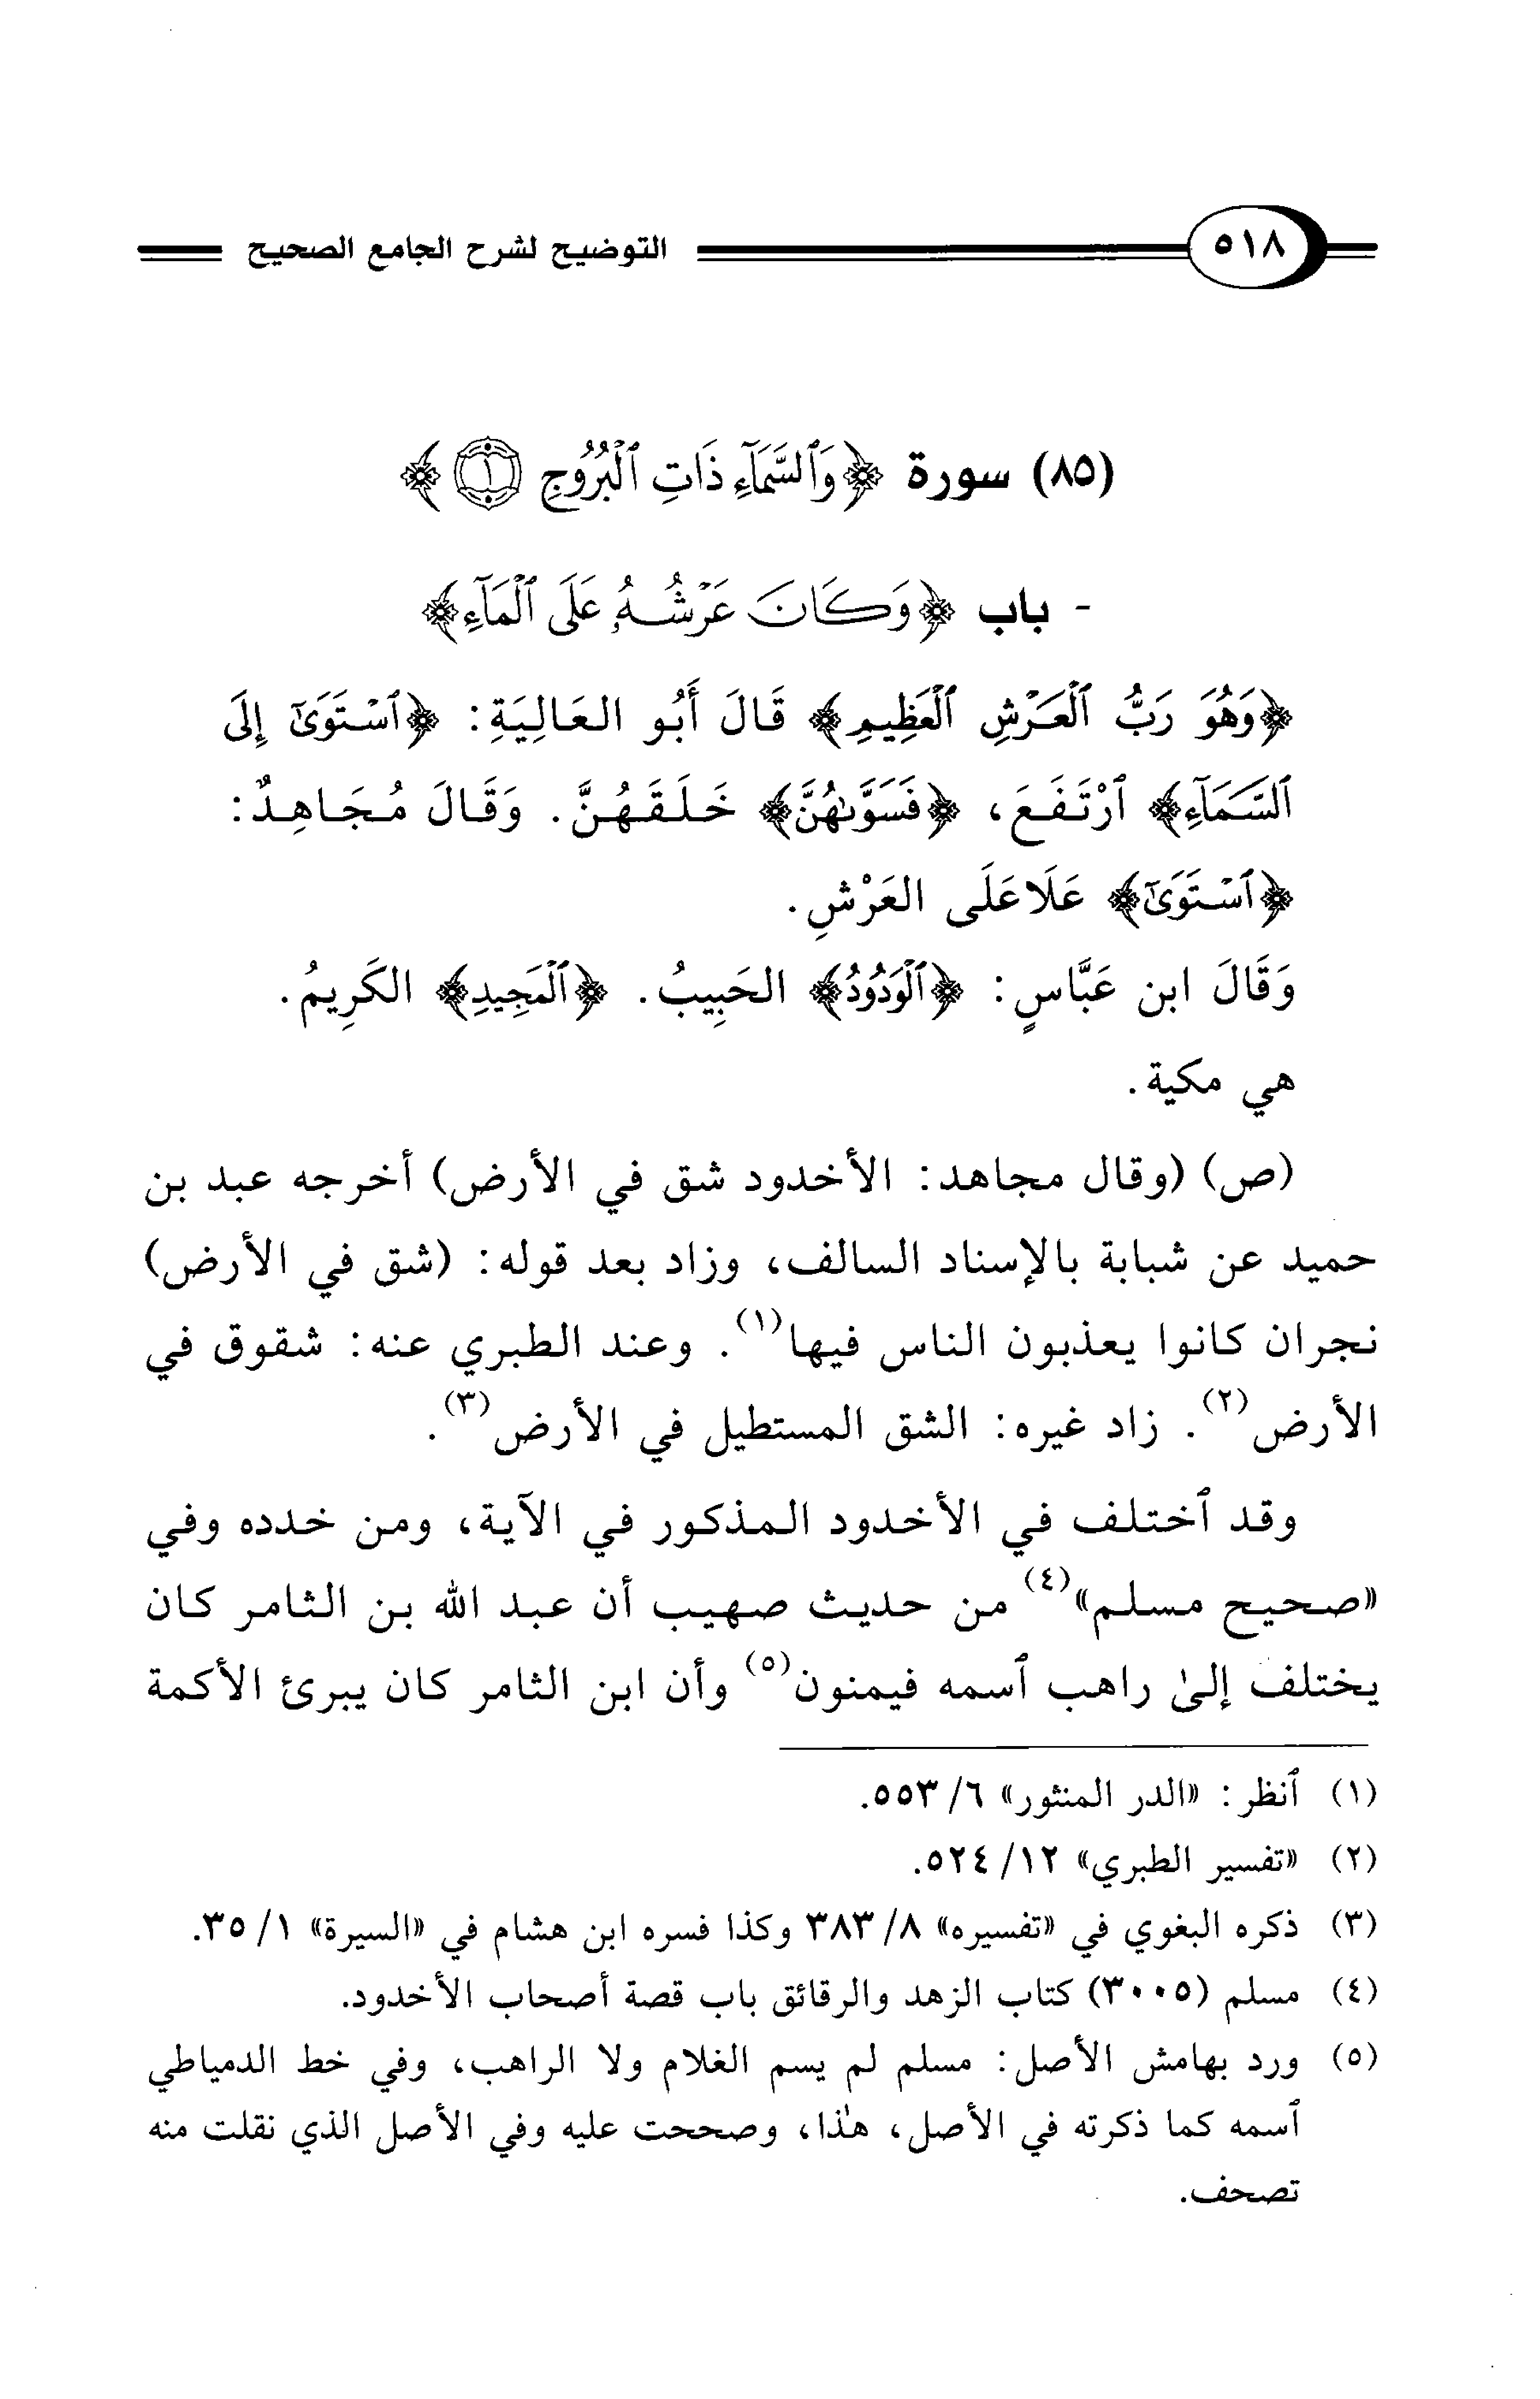 ٥١٨ التوضيح لشرح الجامع الصحيح
(٨٥) سورة ﴿وَٱلسَّمَآءِ ذَاتِ ٱلْبُرُوجِ ١﴾
- باب ﴿وَكَانَ عَرْشُهُۥ عَلَى ٱلْمَآءِ﴾
﴿وَهُوَ رَبُّ ٱلْعَرْشِ ٱلْعَظِيمِ﴾ قَالَ أَبُو العَالِيَةِ: ﴿ٱسْتَوَىٰٓ إِلَى
ٱلسَّمَآءِ﴾ ٱرْتَفَعَ، ﴿فَسَوَّىٰهُنَّ﴾ خَلَقَهُنَّ. وَقَالَ مُجَاهِدٌ:
﴿ٱسْتَوَىٰٓ﴾ عَلَا عَلَى العَرْشِ.
وَقَالَ ابن عَبَّاسٍ: ﴿ٱلْوَدُودُ﴾ الحَبِيبُ. ﴿ٱلْمَجِيدِ﴾ الكَرِيمُ.
هي مكية.
(ص) (وقال مجاهد: الأخدود شق في الأرض) أخرجه عبد بن
حميد عن شبابة بالإسناد السالف، وزاد بعد قوله: (شق في الأرض)
نجران كانوا يعذبون الناس فيها(١). وعند الطبري عنه: شقوق في
الأرض(٢). زاد غيره: الشق المستطيل في الأرض(٣).
وقد ٱختلف في الأخدود المذكور في الآية، ومن خدده وفي
«صحيح مسلم»(٤) من حديث صهيب أن عبد الله بن الثامر كان
يختلف إلىٰ راهب ٱسمه فيمنون(٥) وأن ابن الثامر كان يبرئ الأكمة
(١) ٱنظر: «الدر المنثور» ٦/ ٥٥٣.
(٢) «تفسير الطبري» ١٢/ ٥٢٤.
(٣) ذكره البغوي في «تفسيره» ٨/ ٣٨٣ وكذا فسره ابن هشام في «السيرة» ١/ ٣٥.
(٤) مسلم (٣٠٠٥) كتاب الزهد والرقائق باب قصة أصحاب الأخدود.
(٥) ورد بهامش الأصل: مسلم لم يسم الغلام ولا الراهب، وفي خط الدمياطي
ٱسمه كما ذكرته في الأصل، هذا، وصححت عليه وفي الأصل الذي نقلت منه
تصحف.